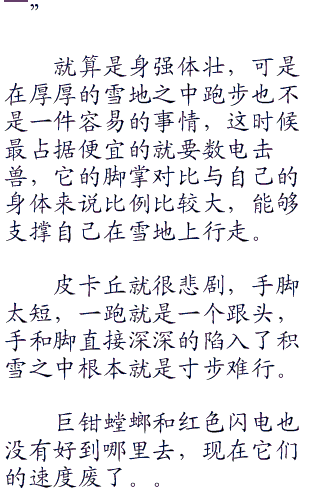 ”
就算是身强体壮，可是
在厚厚的雪地之中跑步也不
是一件容易的事情，这时候
最占据便宜的就要数电击
兽，它的脚掌对比与自己的
身体来说比例比较大，能够
支撑自己在雪地上行走。
皮卡丘就很悲剧，手脚
太短，一跑就是一个跟头，
手和脚直接深深的陷入了积
雪之中根本就是寸步难行。
巨钳螳螂和红色闪电也
没有好到哪里去，现在它们
的速度废了。。